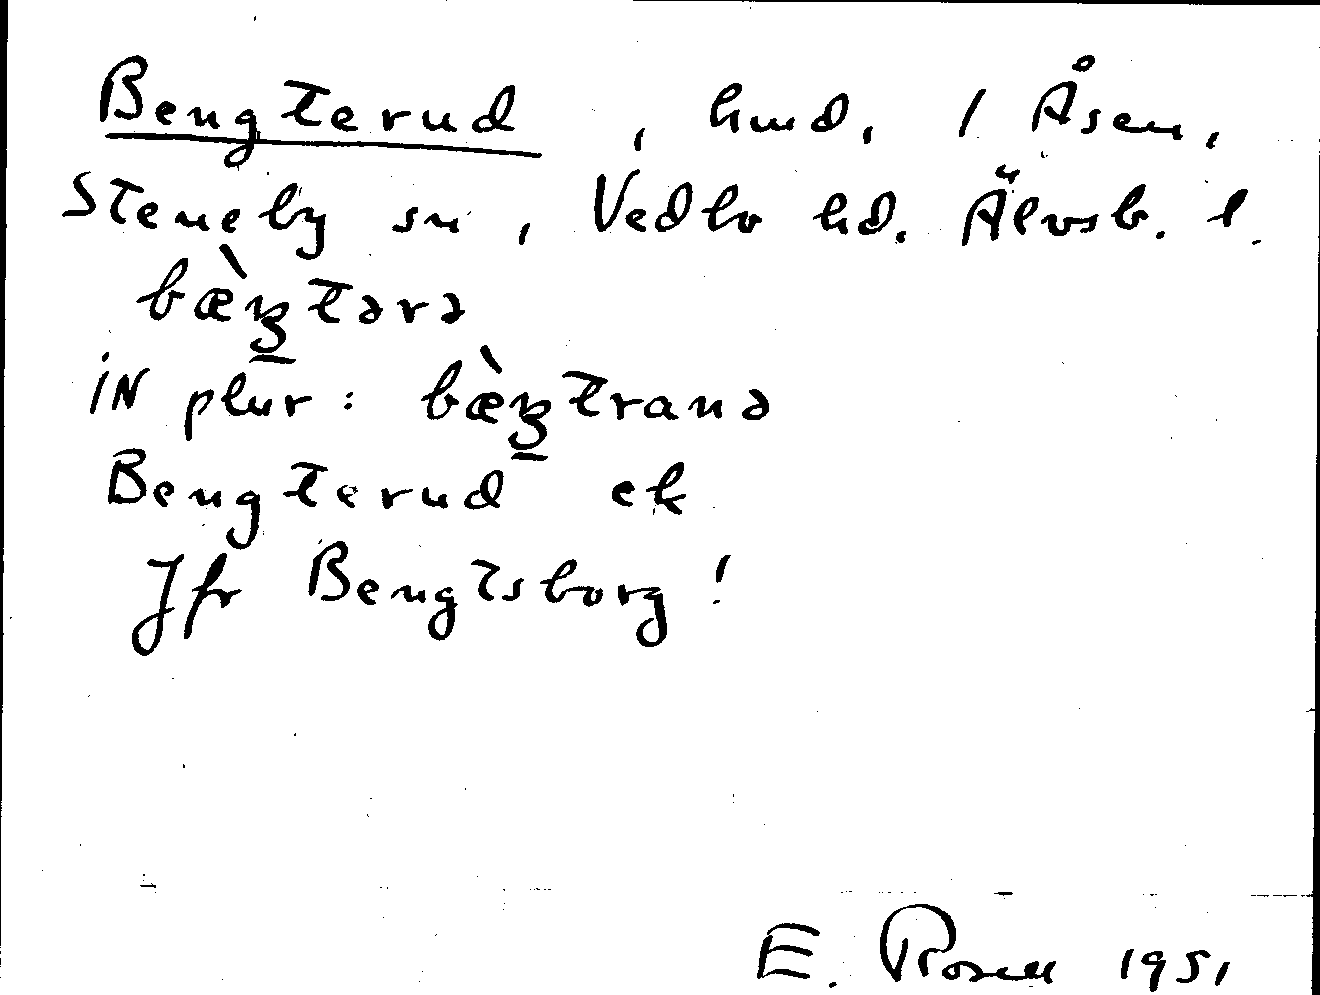 Bengterud, hmd. 1 Åsen,
Steneby sn, Vedbo hd. Älvsb. l.
bæ̀ŋtərə
iN plur: bæ̀ŋtranə
Bengterud ek
Jfr Bengtsborg!
E. Rosell 1951